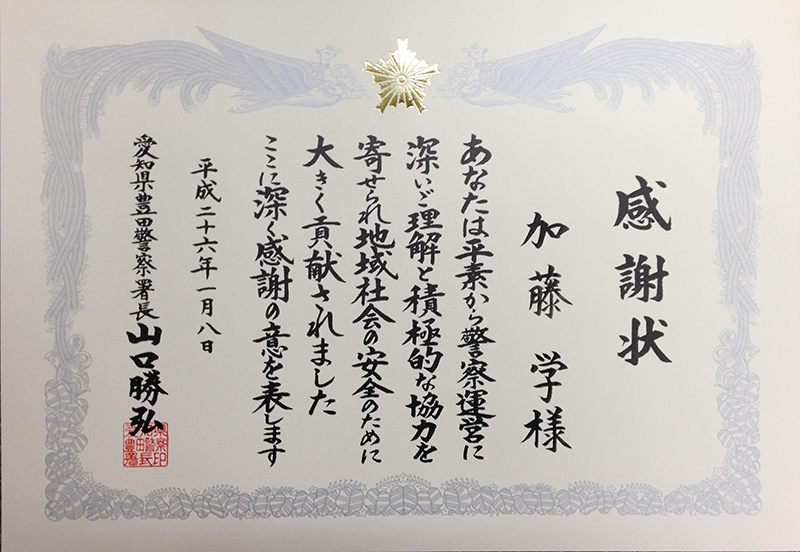 感謝状
加藤学様
あなたは平素から警察運営に
深いご理解と積極的な協力を
寄せられ地域社会の安全のために
大きく貢献されました
ここに深く感謝の意を表します
平成二十六年一月八日
愛知県豊田警察署長 山口勝弘